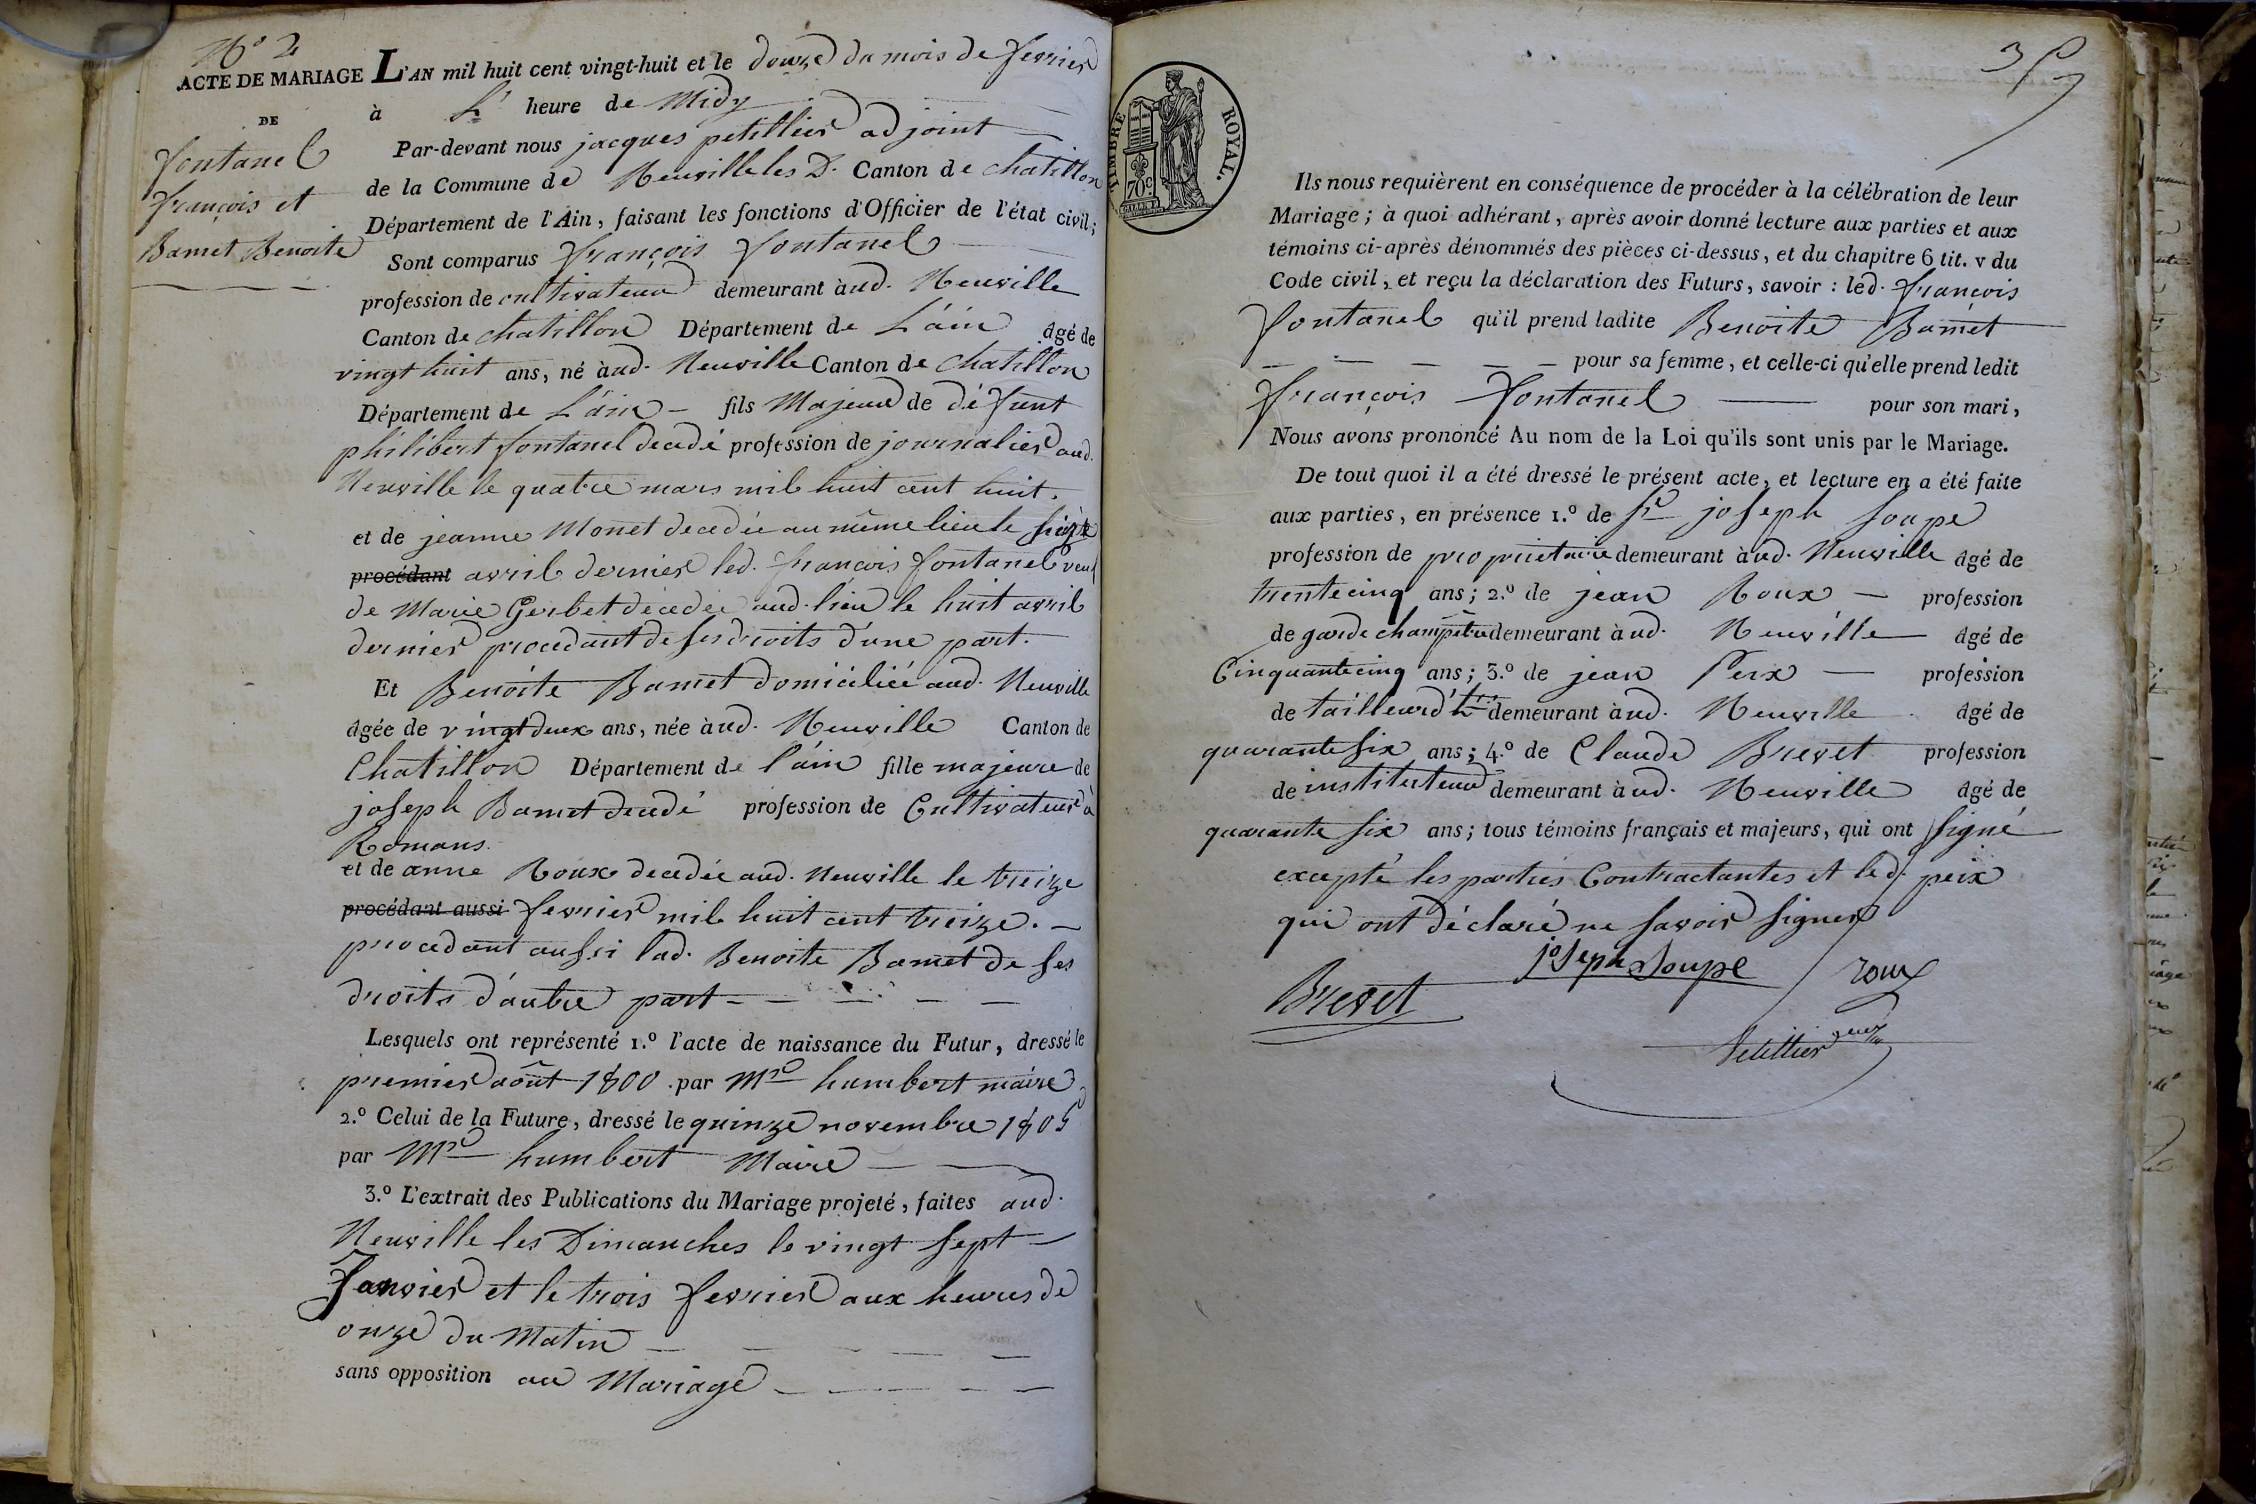 N° 2
ACTE DE MARIAGE
DE
fontanel
françois et
Bamet Benoite
L'AN mil huit cent vingt-huit et le douze du mois de fevrier
à L' heure de Midy
Par-devant nous jacques petillier adjoint
de la Commune de Neuville les D. Canton de chatillon
Département de l'Ain, faisant les fonctions d'Officier de l'état civil;
Sont comparus françois fontanel
profession de cultivateur demeurant àud. Neuville
Canton de chatillon Département de L'ain âgé de
vingt huit ans, né àud. Neuville Canton de Chatillon
Département de L'ain - fils Majeur de défunt
philibert fontanel decedé profession de journalier aud.
Neuville le quatre mars mil huit cent huit.
et de jeanne Monet decedée au même lieu le
procédant avril dernier led. françois fontanel veuf
de Marie Gerbet décédée aud. lieu le huit avril
dernier procedant de ses droits d'une part.
Et Benoite Bamet domiciliée aud. Neuville
âgée de vingt deux ans, née àud. Neuville Canton de
Chatillon Département de l'ain fille majeure de
joseph Bamet decedé profession de Cultivateur à
Romans.
et de anne Roux decedée aud. Neuville le treize
procédant aussi fevrier mil huit cent treize. -
procedant aussi lad. Benoite Bamet de ses
droits d'autre part - - - - -
Lesquels ont représenté 1.° l'acte de naissance du Futur, dressé le
premier août 1800 . par Mr humbert maire
2.° Celui de la Future, dressé le quinze novembre 1805
par Mr humbert Maire
3.° L'extrait des Publications du Mariage projeté, faites aud.
Neuville les Dimanches le vingt sept
Janvier et le trois fevrier aux heures de
onze du Matin
sans opposition au Mariage
3
TIMBRE ROYAL.
70c.
Ils nous requièrent en conséquence de procéder à la célébration de leur
Mariage; à quoi adhérant, après avoir donné lecture aux parties et aux
témoins ci-après dénommés des pièces ci-dessus, et du chapitre 6 tit. v du
Code civil, et reçu la déclaration des Futurs, savoir : led. françois
fontanel qu'il prend ladite Benoite Bamet
- - - - - pour sa femme, et celle-ci qu'elle prend ledit
françois fontanel pour son mari,
Nous avons prononcé Au nom de la Loi qu'ils sont unis par le Mariage.
De tout quoi il a été dressé le présent acte, et lecture en a été faite
aux parties, en présence 1.° de Sr joseph soupe
profession de proprietaire demeurant àud. Neuville âgé de
trente cinq ans; 2.° de jean Roux - profession
de garde champêtre demeurant àud. Neuville âgé de
Cinquante cinq ans; 3.° de jean Peix - profession
de tailleur d'h.ts demeurant àud. Neuville âgé de
quarante six ans; 4.° de Claude Brevet profession
de instituteur demeurant àud. Neuville âgé de
quarante six ans; tous témoins français et majeurs, qui ont signé
excepté les parties Contractantes et led. peix
qui ont déclaré ne savoir signer
joseph Soupe
roux
Brevet
Petillier